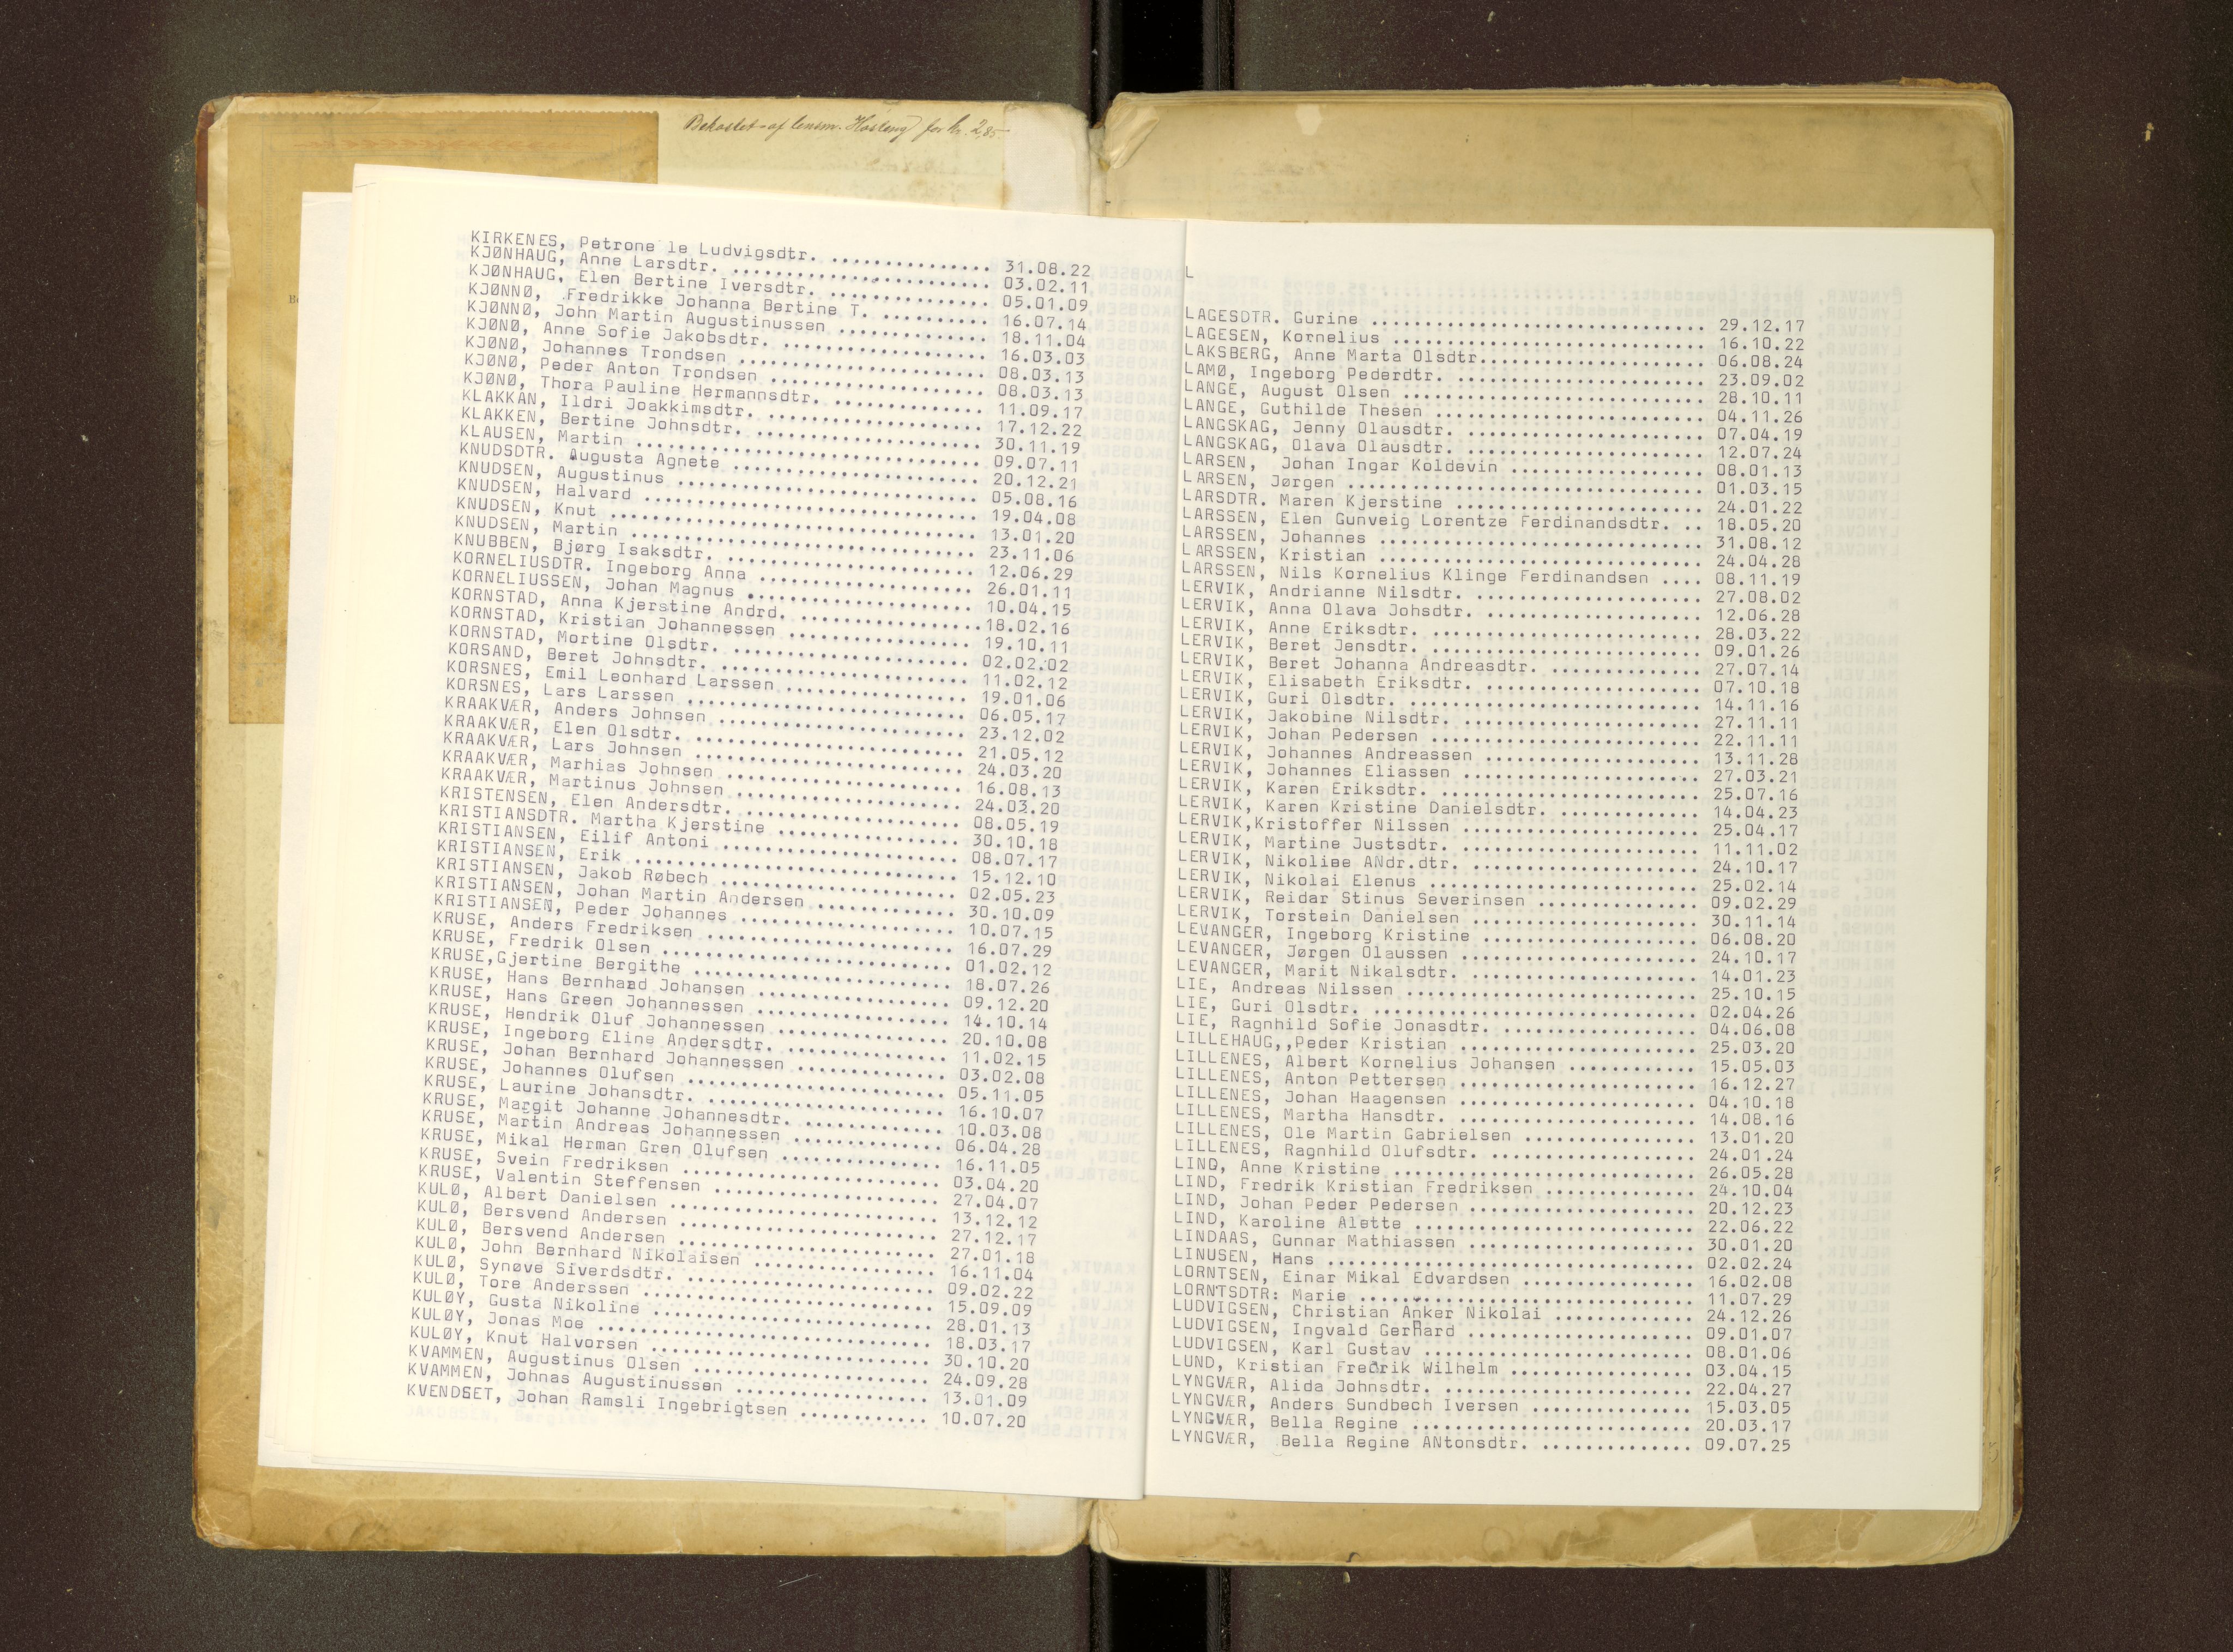 Bekostet af lensm. Hosteng for kr. 2,85
KIRKENES, Petrone le Ludvigsdtr. ............... 31.08.22
KJØNHAUG, Anne Larsdtr. ........................ 03.02.11
KJØNHAUG, Elen Bertine Iversdtr. ............... 05.01.09
KJØNNØ, Fredrikke Johanna Bertine T. .......... 16.07.14
KJØNNØ, John Martin Augustinussen .............. 18.11.04
KJØNØ, Anne Sofie Jakobsdtr. ................... 16.03.03
KJØNØ, Johannes Trondsen ....................... 08.03.13
KJØNØ, Peder Anton Trondsen .................... 08.03.13
KJØNØ, Thora Pauline Hermannsdtr. .............. 11.09.17
KLAKKAN, Ildri Joakkimsdtr. .................... 17.12.22
KLAKKEN, Bertine Johnsdtr. ..................... 30.11.19
KLAUSEN, Martin ................................ 09.07.11
KNUDSDTR. Augusta Agnete ....................... 20.12.21
KNUDSEN, Augustinus ............................ 05.08.16
KNUDSEN, Halvard ............................... 19.04.08
KNUDSEN, Knut .................................. 13.01.20
KNUDSEN, Martin ................................ 23.11.06
KNUBBEN, Bjørg Isaksdtr. ....................... 12.06.29
KORNELIUSDTR. Ingeborg Anna .................... 26.01.11
KORNELIUSSEN, Johan Magnus ..................... 10.04.15
KORNSTAD, Anna Kjerstine Andrd. .................18.02.16
KORNSTAD, Kristian Johannessen ................. 19.10.11
KORNSTAD, Mortine Olsdtr. ...................... 02.02.02
KORSAND, Beret Johnsdtr. ....................... 11.02.12
KORSNES, Emil Leonhard Larssen ................. 19.01.06
KORSNES, Lars Larssen .......................... 06.05.17
KRAAKVÆR, Anders Johnsen ....................... 23.12.02
KRAAKVÆR, Elen Olsdtr. ......................... 21.05.12
KRAAKVÆR, Lars Johnsen ......................... 24.03.20
KRAAKVÆR, Marhias Johnsen ...................... 16.08.13
KRAAKVÆR, Martinus Johnsen ..................... 24.03.20
KRISTENSEN, Elen Andersdtr. .................... 08.05.19
KRISTIANSDTR. Martha Kjerstine ................. 30.10.18
KRISTIANSEN, Eilif Antoni ...................... 08.07.17
KRISTIANSEN, Erik .............................. 15.12.10
KRISTIANSEN, Jakob Røbech ...................... 02.05.23
KRISTIANSEN, Johan Martin Andersen ............. 30.10.09
KRISTIANSEN, Peder Johannes .................... 10.07.15
KRUSE, Anders Fredriksen ....................... 16.07.29
KRUSE, Fredrik Olsen ........................... 01.02.12
KRUSE,Gjertine Bergithe ........................ 18.07.26
KRUSE, Hans Bernhard Johansen .................. 09.12.20
KRUSE, Hans Green Johannessen .................. 14.10.14
KRUSE, Hendrik Oluf Johannessen ................ 20.10.08
KRUSE, Ingeborg Eline Andersdtr. ............... 11.02.15
KRUSE, Johan Bernhard Johannessen .............. 03.02.08
KRUSE, Johannes Olufsen ........................ 05.11.05
KRUSE, Laurine Johansdtr. ...................... 16.10.07
KRUSE, Margit Johanne Johannesdtr. ............. 10.03.08
KRUSE, Martin Andreas Johannessen .............. 06.04.28
KRUSE, Mikal Herman Gren Olufsen ............... 16.11.05
KRUSE, Svein Fredriksen ........................ 03.04.20
KRUSE, Valentin Steffensen ..................... 27.04.07
KULØ, Albert Danielsen ......................... 13.12.12
KULØ, Bersvend Andersen ........................ 27.12.17
KULØ, Bersvend Andersen ........................ 27.01.18
KULØ, John Bernhard Nikolaisen ................. 16.11.04
KULØ, Synøve Siverdsdtr. ....................... 09.02.22
KULØ, Tore Anderssen ........................... 15.09.09
KULØY, Gusta Nikoline .......................... 28.01.13
KULØY, Jonas Moe ............................... 18.03.17
KULØY, Knut Halvorsen .......................... 30.10.20
KVAMMEN, Augustinus Olsen ...................... 24.09.28
KVAMMEN, Johnas Augustinussen .................. 13.01.09
KVENDSET, Johan Ramsli Ingebrigtsen ............ 10.07.20
L
LAGESDTR. Gurine ............................... 29.12.17
LAGESEN, Kornelius ............................. 16.10.22
LAKSBERG, Anne Marta Olsdtr..................... 06.08.24
LAMØ, Ingeborg Pederdtr. ....................... 23.09.02
LANGE, August Olsen ............................ 28.10.11
LANGE, Guthilde Thesen ......................... 04.11.26
LANGSKAG, Jenny Olausdtr. ...................... 07.04.19
LANGSKAG, Olava Olausdtr. ...................... 12.07.24
LARSEN, Johan Ingar Koldevin .................. 08.01.13
LARSEN, Jørgen ................................. 01.03.15
LARSDTR. Maren Kjerstine ....................... 24.01.22
LARSSEN, Elen Gunveig Lorentze Ferdinandsdtr. .. 18.05.20
LARSSEN, Johannes .............................. 31.08.12
LARSSEN, Kristian .............................. 24.04.28
LARSSEN, Nils Kornelius Klinge Ferdinandsen .... 08.11.19
LERVIK, Andrianne Nilsdtr. ..................... 27.08.02
LERVIK, Anna Olava Johsdtr. .................... 12.06.28
LERVIK, Anne Eriksdtr. ......................... 28.03.22
LERVIK, Beret Jensdtr. ......................... 09.01.26
LERVIK, Beret Johanna Andreasdtr. .............. 27.07.14
LERVIK, Elisabeth Eriksdtr. .................... 07.10.18
LERVIK, Guri Olsdtr. ........................... 14.11.16
LERVIK, Jakobine Nilsdtr. ...................... 27.11.11
LERVIK, Johan Pedersen ......................... 22.11.11
LERVIK, Johannes Andreassen .................... 13.11.28
LERVIK, Johannes Eliassen ...................... 27.03.21
LERVIK, Karen Eriksdtr. ........................ 25.07.16
LERVIK, Karen Kristine Danielsdtr. ............. 14.04.23
LERVIK,Kristoffer Nilssen ...................... 25.04.17
LERVIK, Martine Justsdtr. ...................... 11.11.02
LERVIK, Nikoline ANdr.dtr. ..................... 24.10.17
LERVIK, Nikolai Elenus ......................... 25.02.14
LERVIK, Reidar Stinus Severinsen ............... 09.02.29
LERVIK, Torstein Danielsen ..................... 30.11.14
LEVANGER, Ingeborg Kristine .................... 06.08.20
LEVANGER, Jørgen Olaussen ...................... 24.10.17
LEVANGER, Marit Nikalsdtr. ..................... 14.01.23
LIE, Andreas Nilssen ........................... 25.10.15
LIE, Guri Olsdtr. .............................. 02.04.26
LIE, Ragnhild Sofie Jonasdtr. .................. 04.06.08
LILLEHAUG,,Peder Kristian ...................... 25.03.20
LILLENES, Albert Kornelius Johansen ............ 15.05.03
LILLENES, Anton Pettersen ...................... 16.12.27
LILLENES, Johan Haagensen ...................... 04.10.18
LILLENES, Martha Hansdtr. ...................... 14.08.16
LILLENES, Ole Martin Gabrielsen ................ 13.01.20
LILLENES, Ragnhild Olufsdtr. ................... 24.01.24
LIND, Anne Kristine ............................ 26.05.28
LIND, Fredrik Kristian Fredriksen .............. 24.10.04
LIND, Johan Peder Pedersen ..................... 20.12.23
LIND, Karoline Alette .......................... 22.06.22
LINDAAS, Gunnar Mathiassen ..................... 30.01.20
LINUSEN, Hans .................................. 02.02.24
LORNTSEN, Einar Mikal Edvardsen ................ 16.02.08
LORNTSDTR: Marie ............................... 11.07.29
LUDVIGSEN, Christian Anker Nikolai ............. 24.12.26
LUDVIGSEN, Ingvald Gerhard ..................... 09.01.07
LUDVIGSEN, Karl Gustav ......................... 08.01.06
LUND, Kristian Fredrik Wilhelm ................. 03.04.15
LYNGVÆR, Alida Johnsdtr. ....................... 22.04.27
LYNGVÆR, Anders Sundbech Iversen ............... 15.03.05
LYNGVÆR, Bella Regine .......................... 20.03.17
LYNGVÆR, Bella Regine ANtonsdtr. .............. 09.07.25